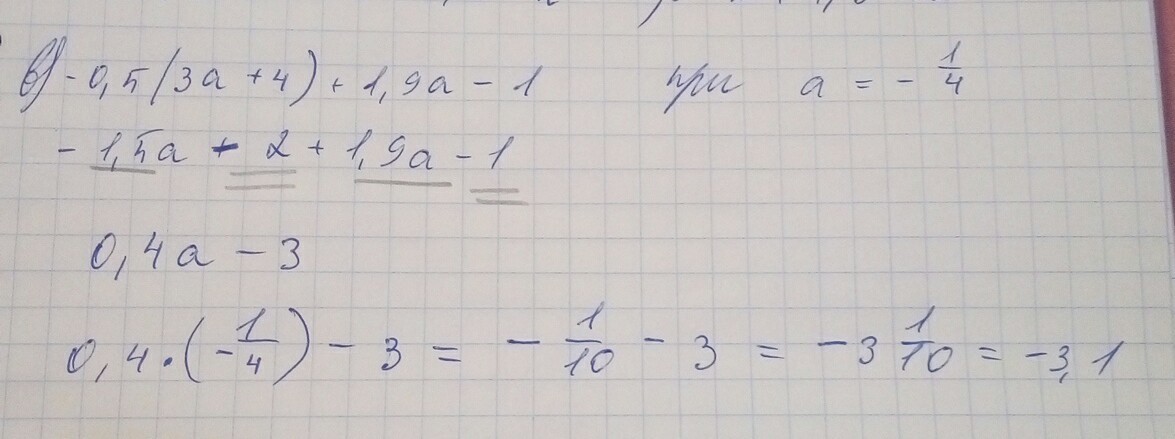 в) -0,5(3a+4)+1,9a-1 при a = -1/4
-1,5a - 2 + 1,9a - 1
0,4a - 3
0,4·(-1/4) - 3 = -1/10 - 3 = -3 1/10 = -3,1